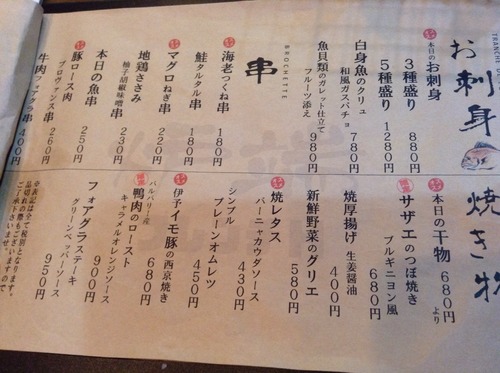 TRANCHE
お刺身
本日のお刺身
3種盛り 880円
5種盛り 1280円
白身魚のクリュ
和風ガスパチョ 780円
魚貝類のガレット仕立て
フルーツ添え 980円
BROCHETTE
串
海老つくね串 180円
鮭タルタル串 180円
マグロねぎ串 220円
地鶏ささみ
柚子胡椒味噌串 230円
本日の魚串 250円
豚ロース肉
プロヴァンス串 260円
牛肉フォアグラ串 400円
焼き物
本日の干物 680円より
サザエのつぼ焼き
ブルギニヨン風 680円
焼厚揚げ 生姜醤油 400円
新鮮野菜のグリエ 580円
焼レタス
バーニャカウダソース 430円
シンプル
プレーンオムレツ 450円
伊予イモ豚の西京焼き 680円
バルバリー産
鴨肉のロースト
キャラメルオレンジソース 900円
フォアグラステーキ
グリーンペッパーソース 950円
※表記は全て税別となります。
品切れの際もございますので
ご了承下さいませ。